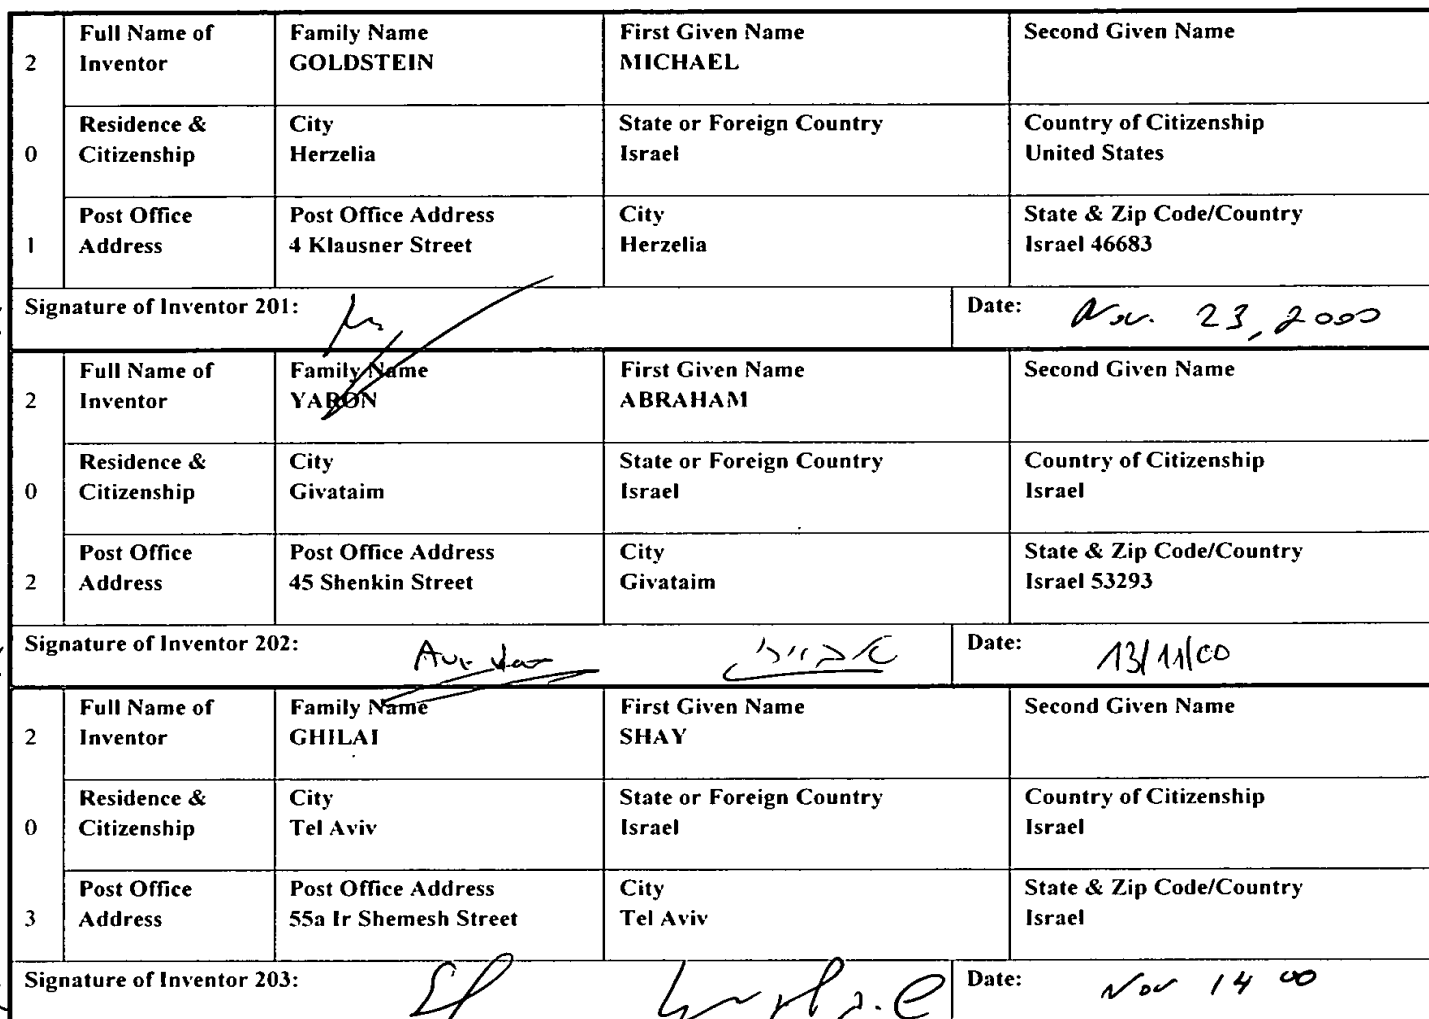 2 Full Name of Inventor Family Name GOLDSTEIN First Given Name MICHAEL Second Given Name
0 Residence & Citizenship City Herzelia State or Foreign Country Israel Country of Citizenship United States
1 Post Office Address Post Office Address 4 Klausner Street City Herzelia State & Zip Code/Country Israel 46683
Signature of Inventor 201: Date: Nov. 23, 2000
2 Full Name of Inventor Family Name YARON First Given Name ABRAHAM Second Given Name
0 Residence & Citizenship City Givataim State or Foreign Country Israel Country of Citizenship Israel
2 Post Office Address Post Office Address 45 Shenkin Street City Givataim State & Zip Code/Country Israel 53293
Signature of Inventor 202: Date: 13/11/00
2 Full Name of Inventor Family Name GHILAI First Given Name SHAY Second Given Name
0 Residence & Citizenship City Tel Aviv State or Foreign Country Israel Country of Citizenship Israel
3 Post Office Address Post Office Address 55a Ir Shemesh Street City Tel Aviv State & Zip Code/Country Israel
Signature of Inventor 203: Date: Nov 14 00